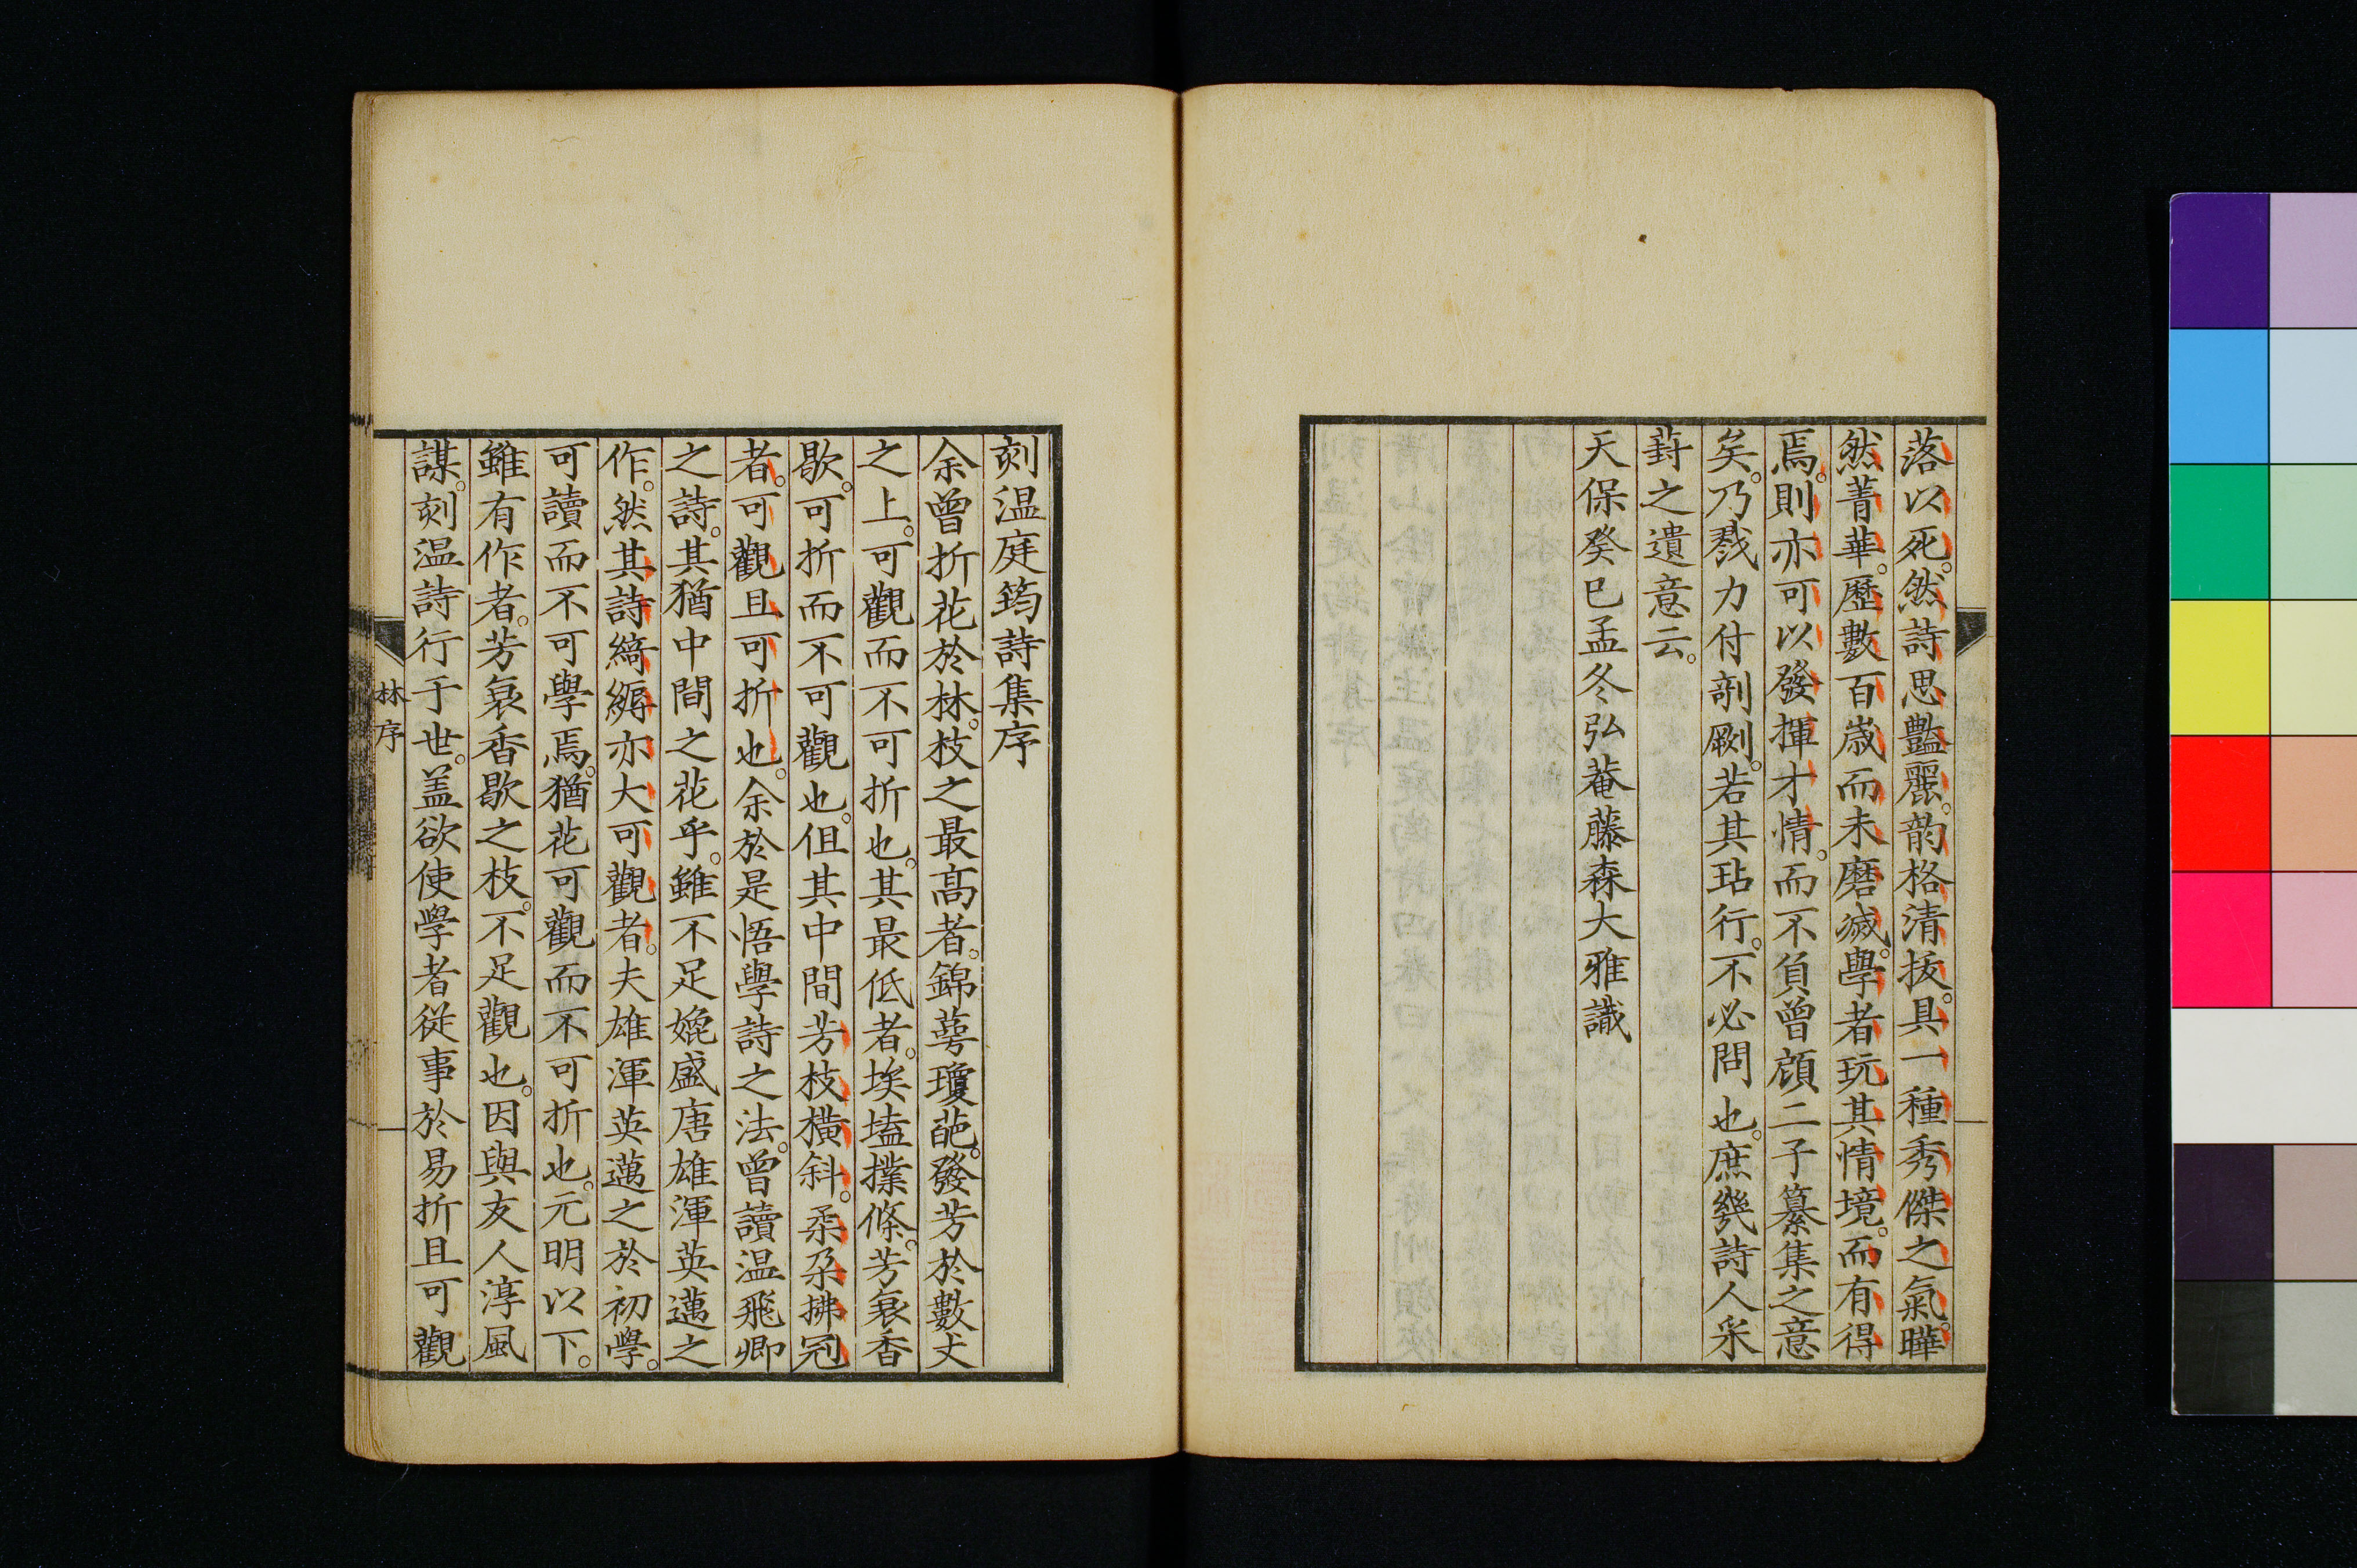 落以死。然詩思豔麗。韵格清拔。具一種秀傑之氣。曄
然菁華。歷數百歲而未磨滅。學者玩其情境。而有得
焉。則亦可以發揮才情。而不負曾顧二子纂集之意
矣。乃戮力付剞劂。若其玷行。不必問也。庶幾詩人采
葑之遺意云。
天保癸巳孟冬弘菴藤森大雅識
刻温庭筠詩集序
余曾折花於林。枝之最高者。錦萼瓊葩。發芳於數丈
之上。可觀而不可折也。其最低者。埃壒撲條。芳衰香
歇。可折而不可觀也。但其中間芳枝橫斜。柔朶拂冠
者。可觀且可折也。余於是悟學詩之法。曾讀温飛卿
之詩。其猶中間之花乎。雖不足媲盛唐雄渾英邁之
作。然其詩綺縟亦大可觀者。夫雄渾英邁之於初學。
可讀而不可學焉。猶花可觀而不可折也。元明以下。
雖有作者。芳衰香歇之枝。不足觀也。因與友人淳風
謀。刻温詩行于世。盖欲使學者從事於易折且可觀
林序